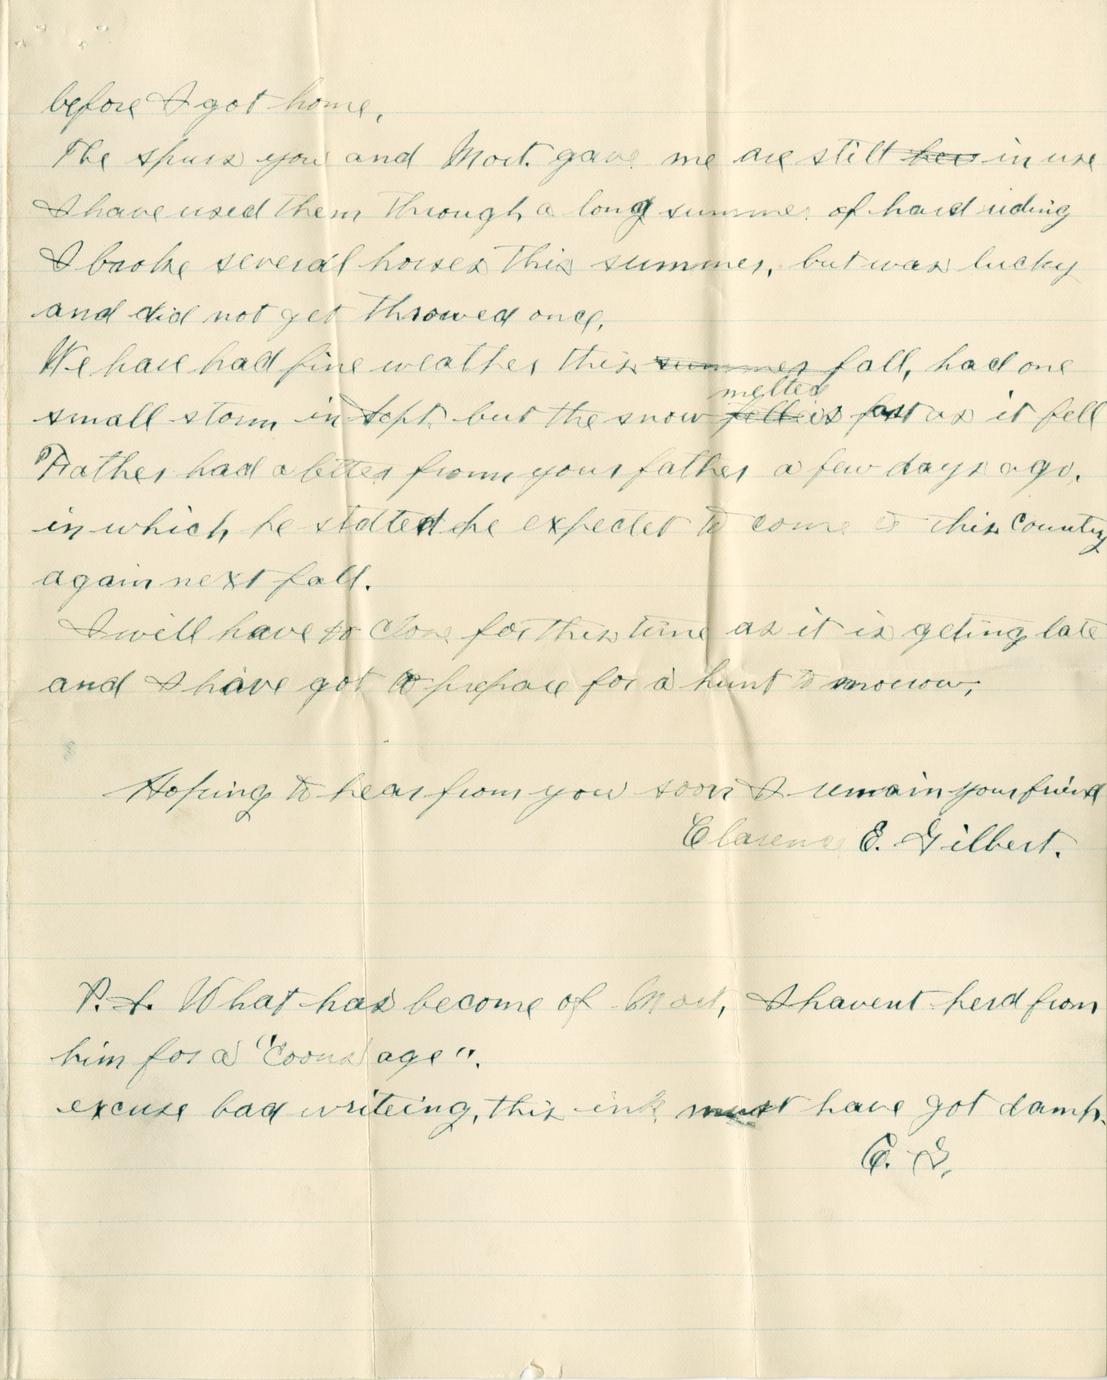 before I got home,
The spurs you and Mort. gave me are still her in use
I have used them through a long summer of hard riding
I broke several horses this summer, but was lucky
and did not get throwed once,
We have had fine weather this summer fall, had one
melted
small storm in Sept. but the snow fell as fast as it fell
Father had a letter from your father a few days ago,
in which he stated he expected to come to this country
again next fall.
I will have to close for this time as it is geting late
and I have got to prepare for a hunt tomorrow,
Hoping to hear from you soon I remain your friend
Clarence E. Gilbert.
P.S. What has become of Mort, I havent herd from
him for a "Coons age".
excuse bad writeing, this ink must have got damp.
C. G.